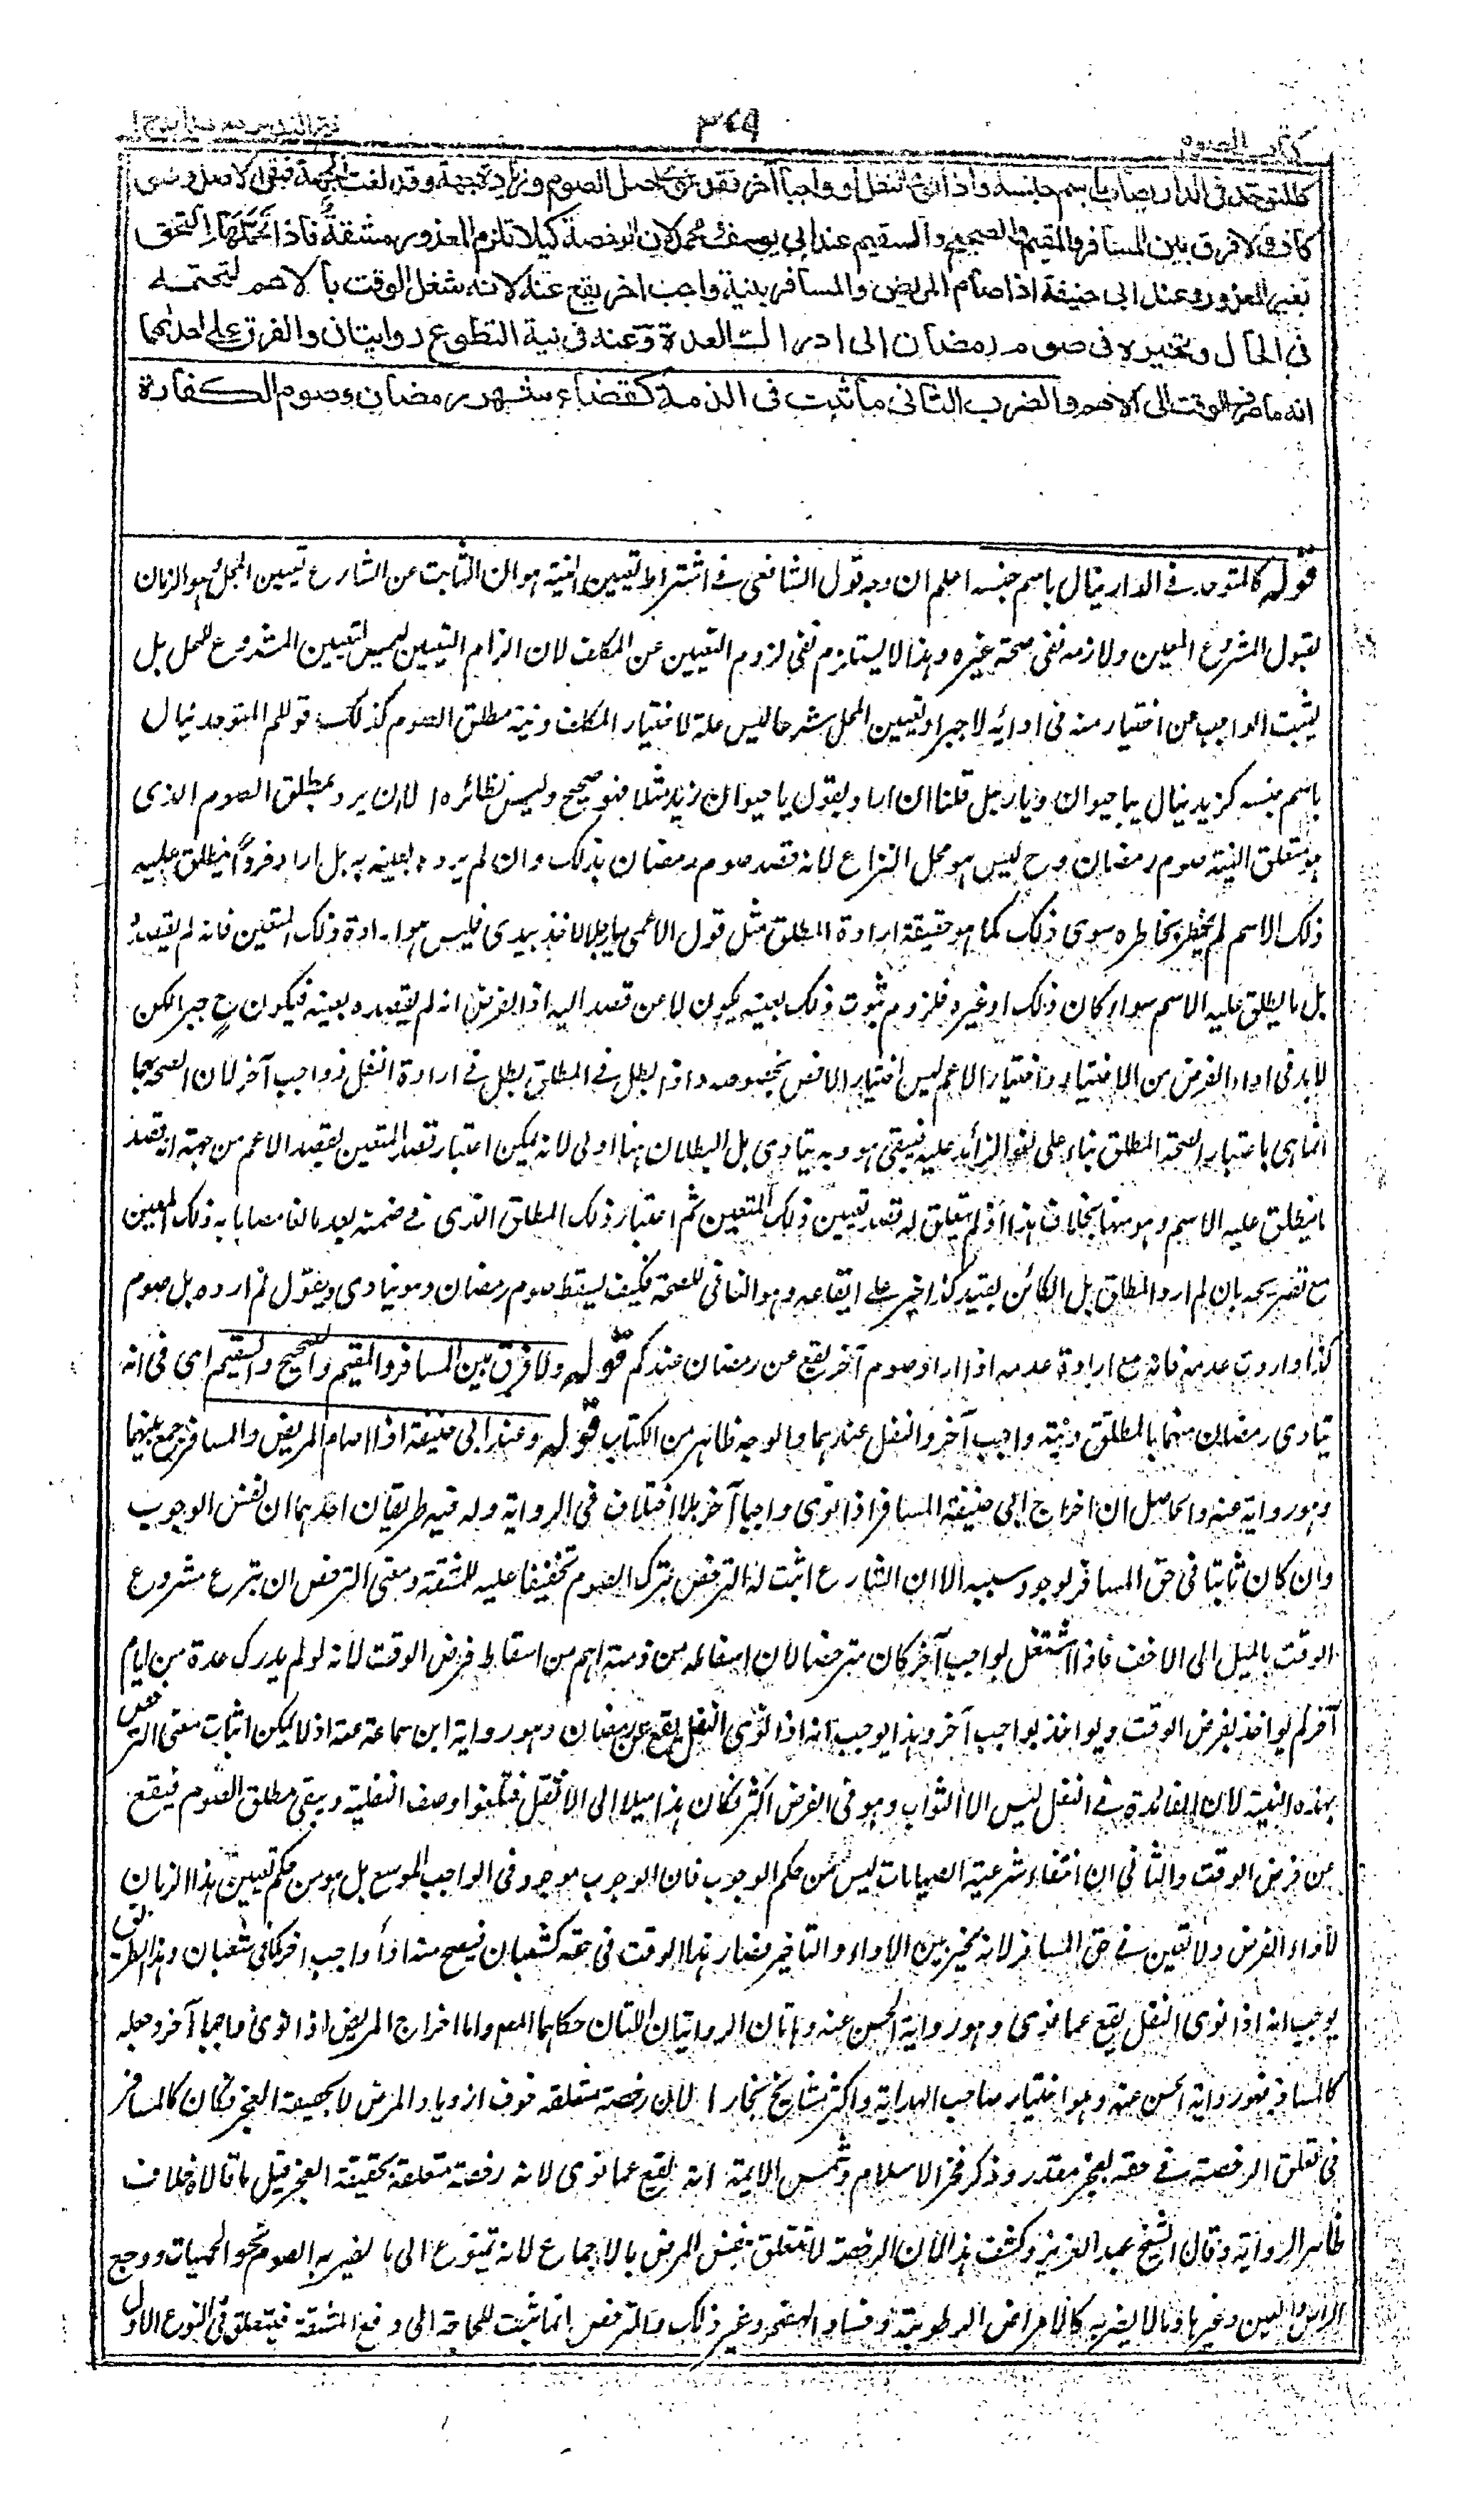 كتاب الصوم
٣٤٩
كالمتوحد في الدار يصاب باسم جنسه واذا نوى النفل او واجبا آخر فقد نوى اصل الصوم وزيادة جهة وقد لغت الجهة فبقي الاصل وهو
كاف ولا فرق بين المسافر والمقيم والصحيح والسقيم عند ابي يوسف ومحمد لان الرخصة كيلا تلزم المعذور مشقة فاذا تحملها التحق
بغير المعذور وعند ابي حنيفة اذا صام المريض والمسافر بنية واجب آخر يقع عنه لانه شغل الوقت بالاهم لتحتمه
في الحال وتخيره في صوم رمضان الى ادراك العدة وعنه في نية التطوع روايتان والفرق على احدٰهما
انه ما صرف الوقت الى الاهم والضرب الثاني ما ثبت في الذمة كقضاء شهر رمضان وصوم الكفارة
قوله كالمتوحد في الدار ينال باسم جنسه اعلم ان وجه قول الشافعي في اشتراط تعيين النية هو ان الثابت عن الشارع تعيين المحل وهو الزمان
لقبول المشروع المعين ولازمه نفي صحة غيره وهذا لا يستلزم نفي لزوم التعيين عن المكلف لان الزام التعيين ليس لتعيين المشروع للمحل بل
ليثبت الواجب عن اختيار منه في ادائه لا جبرا وتعيين المحل شرعا ليس علة لاختيار المكلف ونية مطلق الصوم كذلك قولهم المتوحد ينال
باسم جنسه كزيد ينال بيا حيوان ويا رجل قلنا ان اراد بقوله يا حيوان زيد مثلا فهو صحيح وليس نظائره الا ان يرد بمطلق الصوم الذي
هو متعلق النية صوم رمضان وح ليس هو محل النزاع لانه قصد صوم رمضان بذلك وان لم يرده بعينه به بل اراد فردا يطلق عليه
ذلك الاسم لم يخطر بخاطره سوى ذلك كما هو حقيقة ارادة المطلق مثل قول الاعمى يا رجلا خذ بيدي فليس هو ارادة ذلك المتعين فانه لم يقصده
بل ما يطلق عليه الاسم سواء كان ذلك او غيره فلزوم ثبوت ذلك بعينه يكون لا عن قصد اليه اذ الفرض انه لم يقصده بعينه فيكون ح جبرا لكن
لا بد في اداء الفرض من الاختيار واختيار الاعم ليس اختيار الاخص بخصوصه واذا بطل في المطلق بطل في ارادة النفل وواجب آخر لان الصحة بهما
انما هي باعتبار الصحة بالمطلق بناء على لغو الزائد عليه فيبقى هو وبه يتادى بل البطلان هنا اولى لانه يمكن اعتبار قصد المتعين بقصد الاعم من جهة انه قصد
ما يطلق عليه الاسم وهو منها بخلاف هذا اذ لم يتعلق له قصد تعيين ذلك المتعين ثم اعتبار ذلك المطلق الذي في ضمنه بعد ما لغا مصابا به ذلك المعين
مع تصريحه باني لم ارد المطلق بل الكائن بقيد كذا جبر على ايقاعه وهو النافي للصحة فكيف يسقط صوم رمضان وهو ينادى ويقول لم ارده بل صوم
كذا واردت عدمه فانه مع ارادة عدمه اذا اراد صوم آخر يقع عن رمضان عندكم قوله ولا فرق بين المسافر والمقيم والصحيح والسقيم اى في انه
يتادى رمضان منهما بالمطلق ونية واجب آخر والنفل عندهما والوجه ظاهر من الكتاب قوله وعند ابي حنيفة اذا صام المريض والمسافر جمع بينهما
وهو رواية عنه والحاصل ان اخراج ابي حنيفة المسافر اذا نوى واجبا آخر بلا اختلاف في الرواية وله فيه طريقان احدهما ان نفس الوجوب
وان كان ثابتا في حق المسافر لوجود سببه الا ان الشارع اثبت له الترخص بترك الصوم تخفيفا عليه للمشقة ومعنى الترخص ان يترع مشروع
الوقت بالميل الى الاخف فاذا اشتغل بواجب آخر كان مترخصا لان اسقاطه من ذمته اهم من اسقاط فرض الوقت لانه لو لم يدرك عدة من ايام
آخر لم يواخذ بفرض الوقت ويواخذ بواجب آخر وهذا يوجب انه اذا نوى النفل يقع عن رمضان وهو رواية ابن سماعة عنه اذ لا يمكن اثبات معنى الترخص
بهذه النية لان الفائدة في النفل ليس الا الثواب وهو في الفرض اكثر فكان هذا ميلا الى الاثقل فتلغوا وصف النفلية ويبقى مطلق الصوم فيقع
عن فرض الوقت والثاني ان انتفاء شرعية الصيامات ليس من حكم الوجوب فان الوجوب موجود في الواجب الموسع بل هو من حكم تعيين هذا الزمان
لاداء الفرض ولا تعين في حق المسافر لانه مخير بين الاداء والتاخير فصار هذا الوقت في حقه كشعبان فيصح منه اداء واجب آخر كما في شعبان وهذا الطريق
يوجب انه اذا نوى النفل يقع عما نوى وهو رواية الحسن عنه وهاتان الروايتان اللتان حكاهما المصم واما اخراج المريض اذا نوى واجبا آخر وجعله
كالمسافر فهو رواية الحسن عنه وهو اختيار صاحب الهداية واكثر مشايخ بخارا لان رخصته متعلقة بخوف ازدياد المرض لا بحقيقة العجز فكان كالمسافر
في تعلق الرخصة في حقه بعجز مقدر وذكر فخر الاسلام وشمس الايمة انه يقع عما نوى لانه رخصته متعلقة بحقيقة العجز قيل ما قالاه خلاف
ظاهر الرواية وقال الشيخ عبد العزيز وكشف هذا ان الرخصة لا تتعلق بنفس المرض بالاجماع لانه يتنوع الى ما يضر به الصوم نحو الحميات ووجع
الراس والعين وغيرها وما لا يضر به كالامراض الرطوبية وفساد الهضم وغير ذلك والترخص انما ثبت للحاجة الى دفع المشقة فيتعلق في النوع الاول